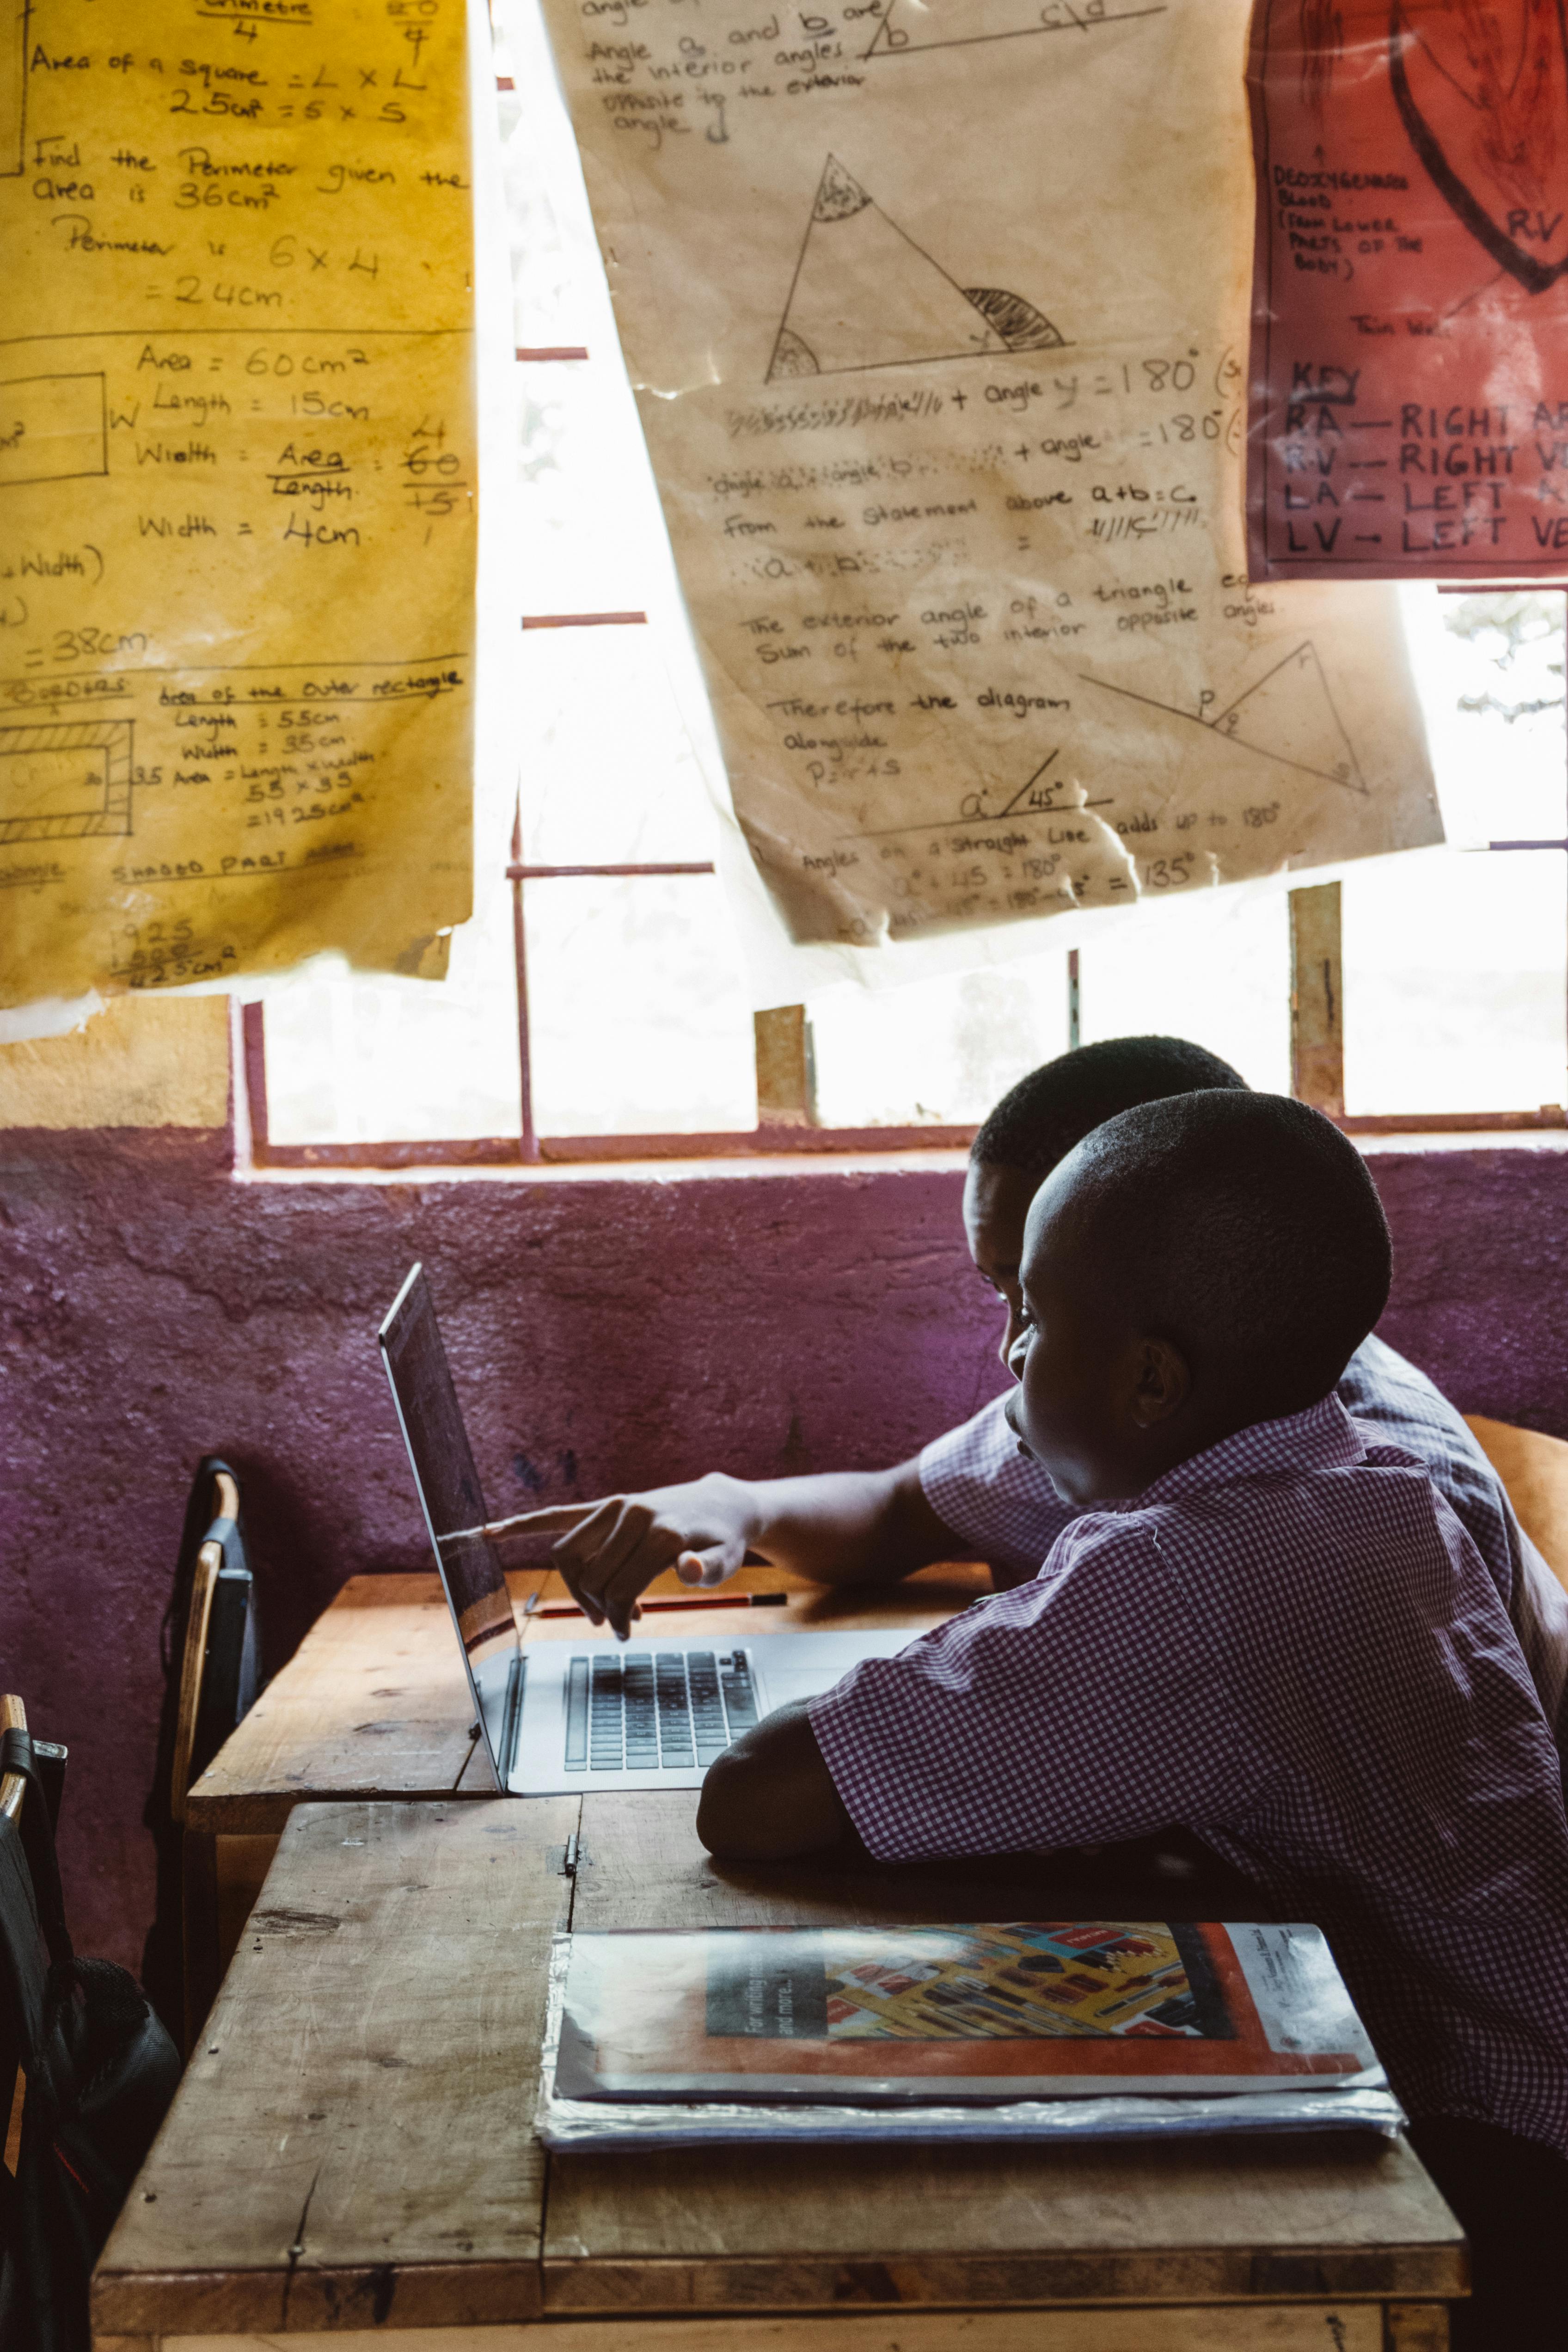 4
Area of a square = L x L
25cm² = 5 x 5
Find the Perimeter given the
area is 36cm²
Perimeter is 6 x 4
= 24cm.
Area = 60cm²
W Length = 15cm
Width = Area = 60 4
Length 15 1
Width = 4cm.
Width)
= 38cm
BORDERS
Area of the outer rectangle
Length = 55cm
Width = 35cm
35 Area = Length x width
55 x 35
= 1925cm²
SHADED PART
1925
425cm²
angle
b c d
Angle a and b are
the interior angles
opposite to the exterior
angle
y
+ angle y = 180°
angle a + angle b + angle = 180°
From the statement above a+b=c
a + b = c
The exterior angle of a triangle
Sum of the two interior opposite angles
Therefore the diagram
alongside
P= r+s
p q r s
a° 45°
Angles on a straight Line adds up to 180°
a° + 45 = 180°
180°-45° = 135°
DEOXYGENATED
BLOOD
(FROM LOWER
PARTS OF THE
BODY)
RV
KEY
RA — RIGHT
RV — RIGHT
LA — LEFT
LV — LEFT
For writing
and more..